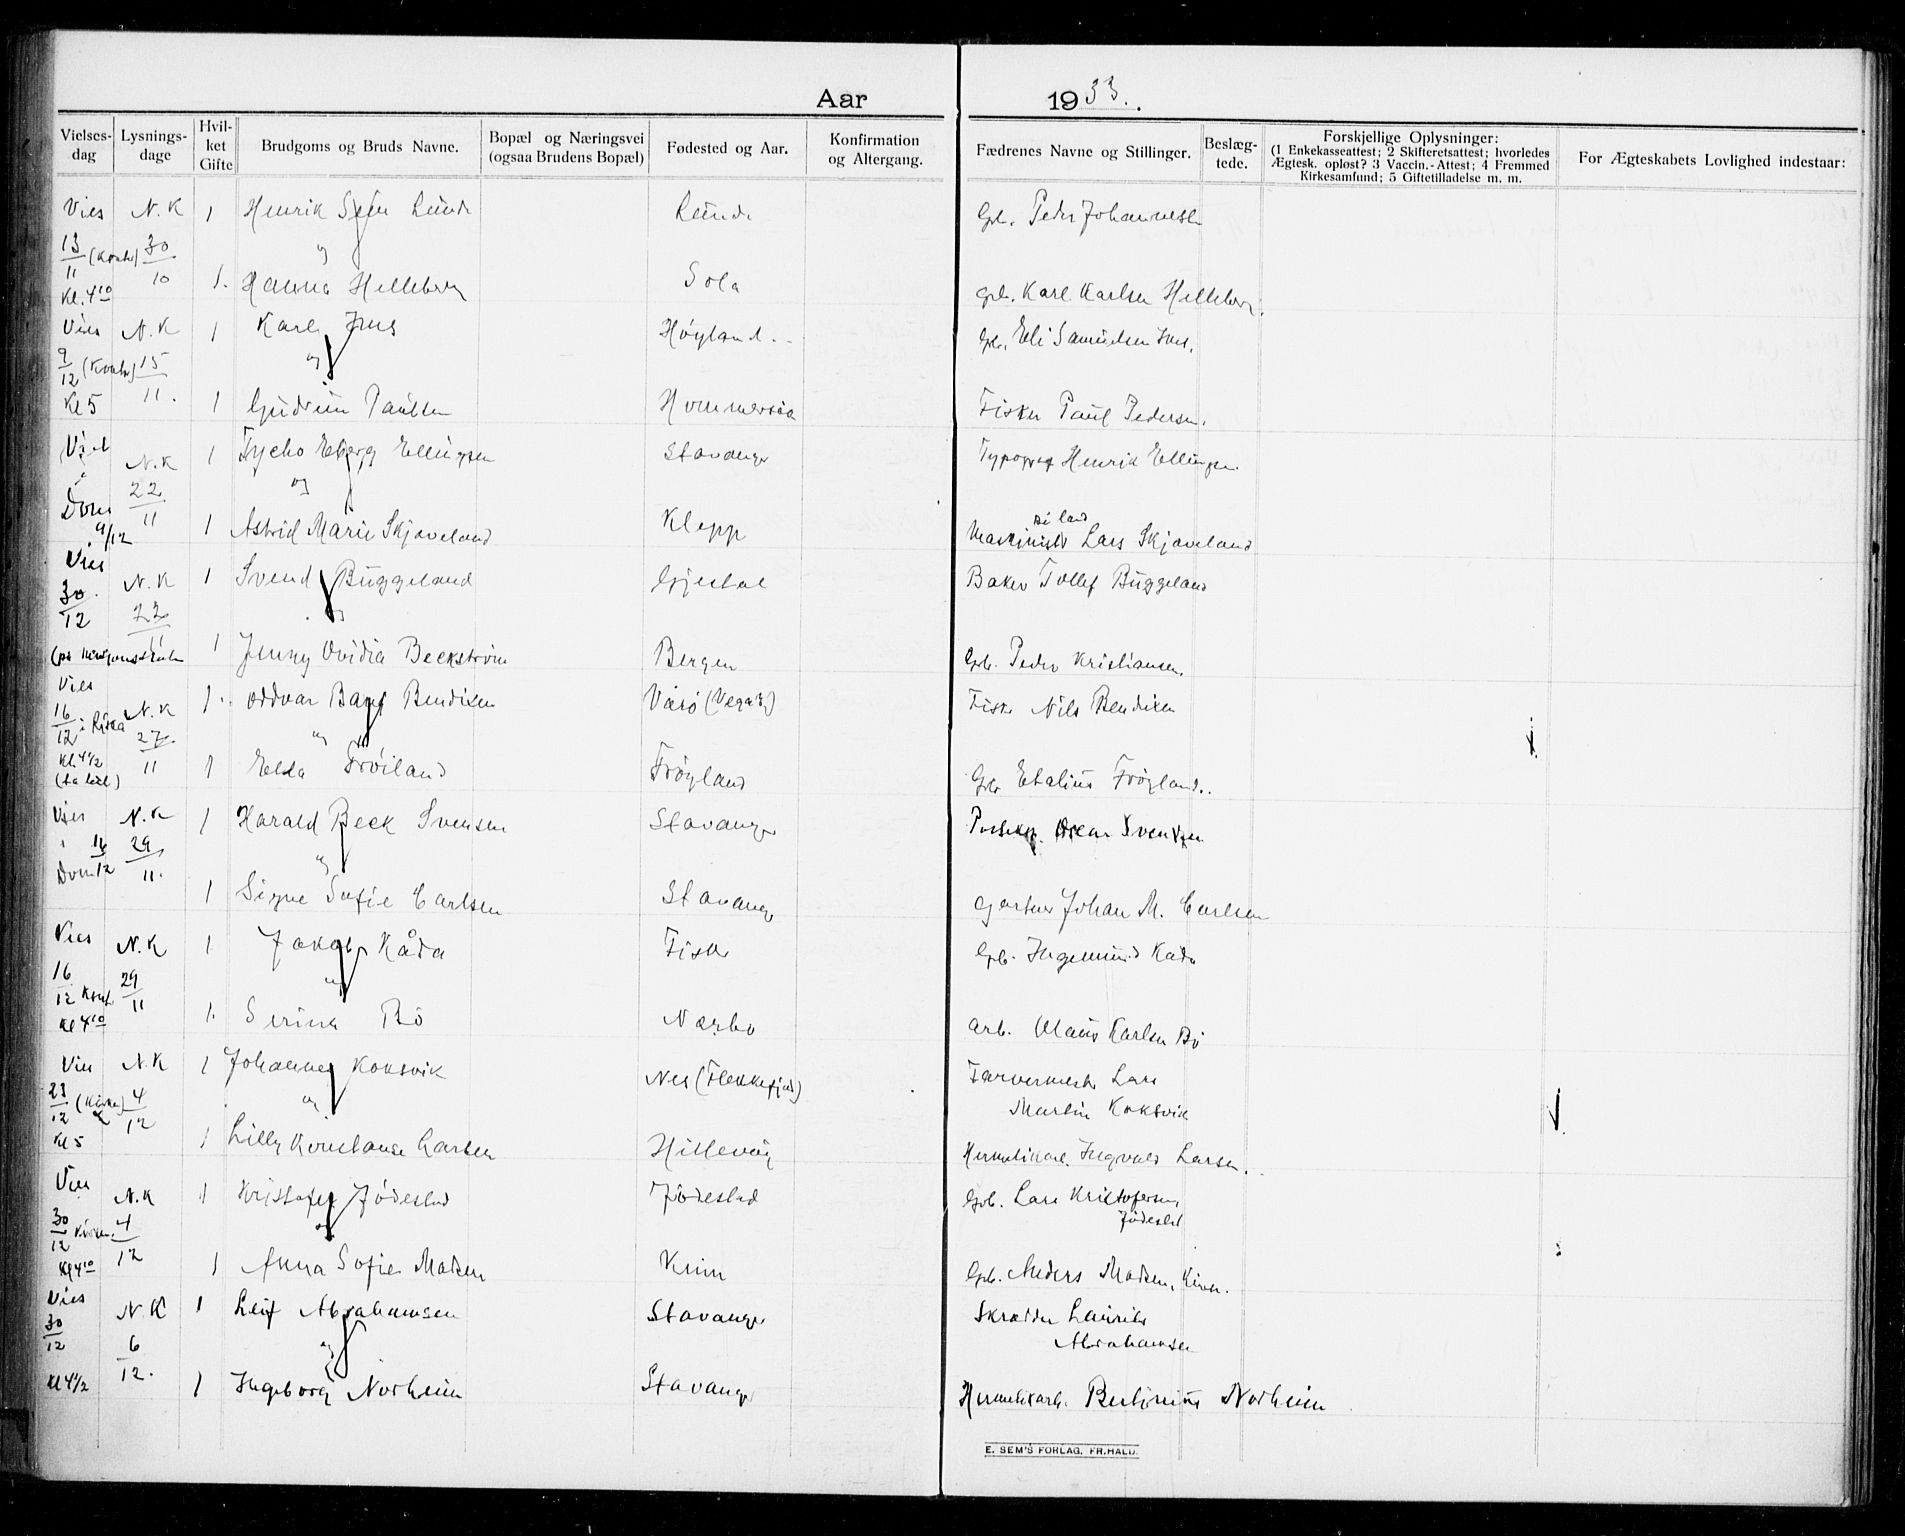 Aar 1933.
Vielses-dag Lysnings-dage Hvilket Gifte Brudgoms og Bruds Navne. Bopæl og Næringsvei (ogsaa Brudens Bopæl) Fødested og Aar. Konfirmation og Altergang. Fædrenes Navne og Stillinger. Beslæg-tede. Forskjellige Oplysninger: (1 Enkekasseattest; 2 Skifteretsattest; hvorledes Ægtesk. opløst? 3 Vaccin.-Attest; 4 Fremmed Kirkesamfund; 5 Giftetilladelse m. m. For Ægteskabets Lovlighed indestaar:
Vies N.K 1 Henrik Sem Lunde Lunde Gbr. Peder Johannesen
13/11 30/10 og
Kl. 4 10 1. Hanna Helleberg Sola Gbr. Karl Karlsen Helleberg
Vies N.K 1 Karl Høyland Gbr. Eli Samuelsen
9/12 15/11. og
Kl 5 1 Gudrun Paulsen Hommersåk Fisker Paul Pedersen.
Viet N.K 1 Tycho Eberg Ellingsen Stavanger Typograf Henrik Ellingsen
i 22/11 og
Dom 9/12 1 Astrid Marie Skjæveland Klepp Maskinist Lars Skjæveland
Vies N.K 1 Svend Buggeland Gjestal Baker Tollef Buggeland
30/12 22/11 og
1 Jenny Ovidia Beckstrøm Bergen Gbr. Peder Kristiansen.
Vies N.K 1 Oddvar Bang Bendiksen (Vega) Fisker Nils Bendixen
16/12 i Riska 27/11 og
Kl. 4 1/2 1 Elda Frøiland Frøyland Gbr Etalius Frøyland.
Vies N.K 1 Harald Beck Svensen Stavanger Oscar Svendsen
i Dom 16/12 29/11. og
1 Signe Sofie Carlsen Stavanger Gartner Johan M. Carlsen
Vies N.K 1. Jakob Kåda Fister Gbr. Ingemund Kåda
16/12 29/11 og
Kl 4 10 1. Serina Bø Nærbø Arb. Claus Karlsen Bø
Vies N.K 1 Johannes Koksvik Nes (Flekkefjord) Farvermester Lars
Martin Koksvik
23/12 (Kirke) 4/12 og
Kl 5 1 Lilly Konstanse Larsen Hillevåg Hermetikarb. Ingvald Larsen.
Vies N.K 1 Kristofer Jødestad Jødestad Gbr. Lars Kristofersen
Jødestad
30/12 4/12 og
Kl 4 10 1 Anna Sofie Madsen Gbr. Anders Madsen,
Vies N.K 1 Leif Abrahamsen Stavanger Skrædder Lauritz
Abrahamsen
30/12 6/12. og
Kl 4 1/2 1 Ingeborg Norheim Stavanger Hermetikarb. Bertinius Norheim
E. SEM'S FORLAG, FR.HALD.